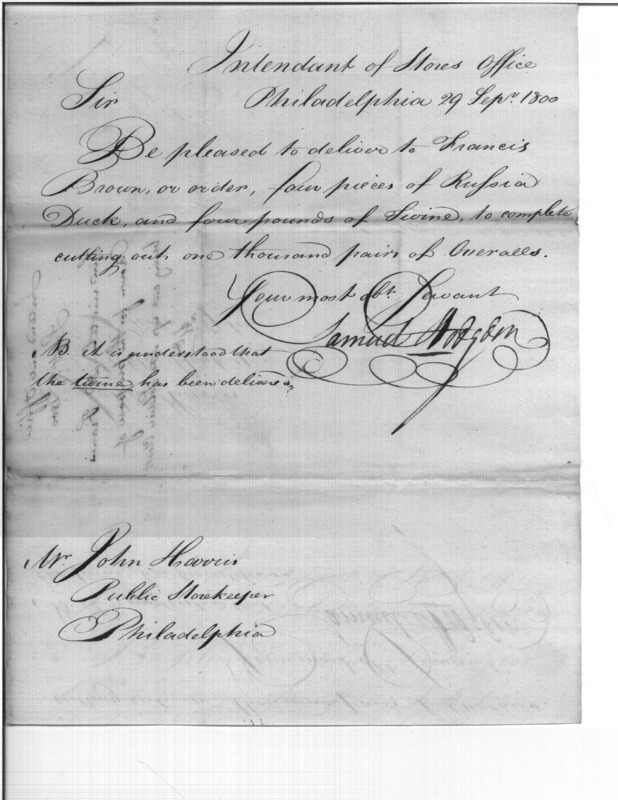 Intendant of Stores Office
Philadelphia 29 Sepr. 1800
Sir
Be pleased to deliver to Francis
Brown, or order, four pieces of Russia
Duck, and four pounds of Twine, to complete
cutting out one thousand pairs of Overalls.
Your most obt. Servant
Samuel Hodgdon
NB it is understood that
the twine has been delivered,
Mr. John Harris
Public Storekeeper
Philadelphia